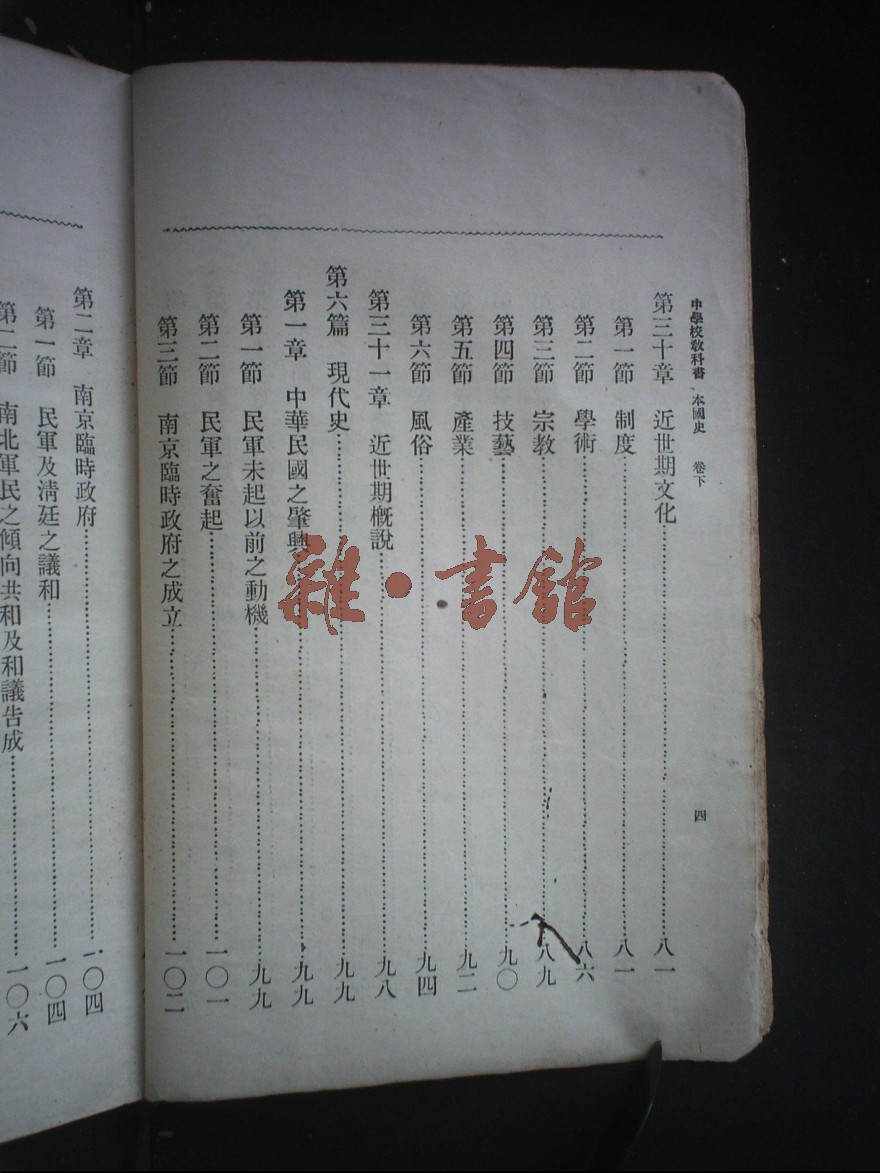 中學校教科書 本國史 卷下 四
第三十章 近世期文化 八一
第一節 制度 八一
第二節 學術 八六
第三節 宗教 八九
第四節 技藝 九〇
第五節 產業 九二
第六節 風俗 九四
第三十一章 近世期概說 九八
第六篇 現代史 九九
第一章 中華民國之肇興 九九
第一節 民軍未起以前之動機 九九
第二節 民軍之奮起 一〇一
第三節 南京臨時政府之成立 一〇二
第二章 南京臨時政府 一〇四
第一節 民軍及淸廷之議和 一〇四
第二節 南北軍民之傾向共和及和議告成 一〇六
雜·書館